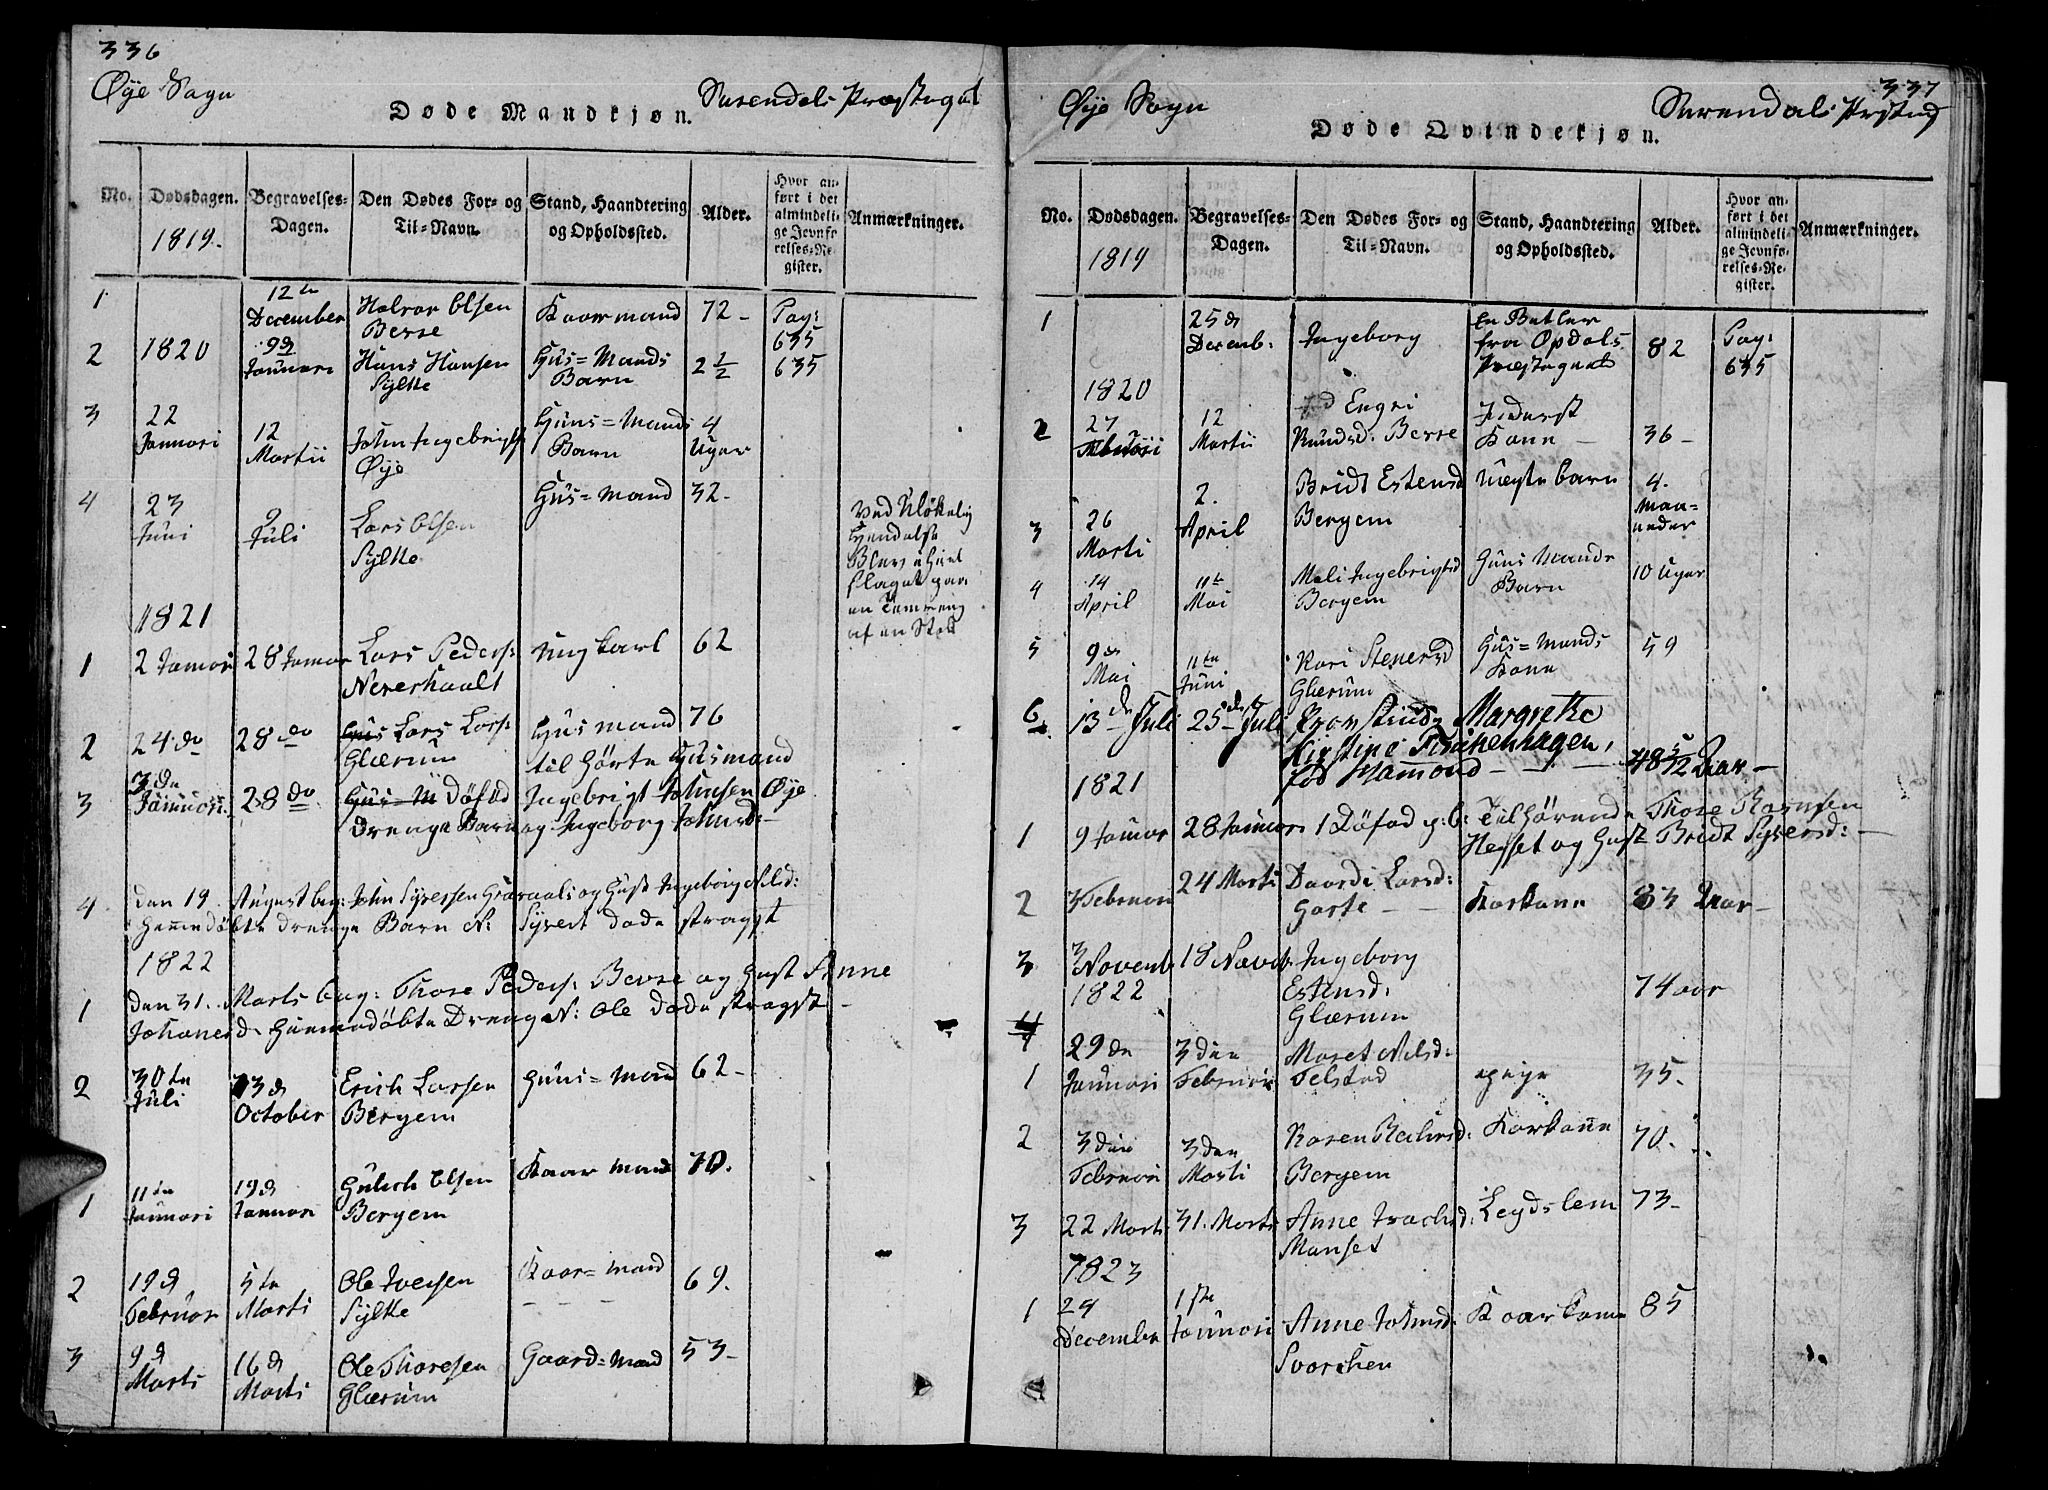 336
Øye Sogn
Døde Mandkjøn.
Surendals Præstegiel
No.
Dødsdagen.
Begravelses-
Dagen.
Den Dødes For- og
Til-Navn.
Stand, Haandtering
og Opholdssted.
Alder.
Hvor an-
ført i det
almindeli-
ge Jevnfø-
relses-Re-
gister.
Anmærkninger.
1819.
1 12te December Halvor Olsen Berse Kaarmand 72 - Pag: 635
1820
2 9d Januari Hans Hansen Sylte Huus=Mands Barn 2 1/2 635
3 22 Januari 12 Martii John Ingebrigts Øye Huus=Mands Barn 4 Uger
4 23 Juni 2 Juli Lars Olsen Sylte Huus=Mand 32-
Ved Ulökelig
Hendelse
Blev ihiel
slaget paa
en Tømring
af en Stok
1821
1 2 Januar 28 Januar Lars Peders: Nererhaalt Ung karl 62
2 24 do 28 do Lars Lars: Glærum Huusmand 76
3 3de Januari 28 do Döfød Drenge Barn
til hörte Huusmand
Ingebrigt Johnsen Øye
og Ingeborg Johnsd:
4 den 19 August beg: John Syversen og Hust Ingeborg Nilsd:
Hiemedöbte drenge Barn N: Syvert døde stragst
1822
1 den 31. Marts beg: Thore Peders: Berse og Hust Anne
Johanesd. Hiemmedöbte Dreng N: Ole døde stragst -
2 30te Juli 13d October Erich Larsen Bergem Huus=Mand 62-
1 11te Januari 19d Januari Gulich Olsen Bergem Kaar mand 70.
2 19d Februar 5te Marti Ole Iversen Sylte Kaar=mand 69.
3 9d Marts 16d Marts Ole Thoresen Glærum Gaard=Mand 53-
337
Øye Sogn
Døde Qvindekjøn.
Surendals Præsteg
No.
Dødsdagen.
Begravelses-
Dagen.
Den Dødes For- og
Til-Navn.
Stand, Haandtering
og Opholdssted.
Alder.
Hvor an-
ført i det
almindeli-
ge Jevnfø-
relses-Re-
gister.
Anmærkninger.
1819
1 25d Decemb: Ingeborg En Betler fra Opdals Præstegield 82 Pag: 635
1820
2 27 Februari 12 Martii Engri Knudsd: Berse Kone - 36-
3 26 Marti 2. April Bridt Estensd Bergem Uægte barn 4. Maaneder
4 14 April 11te Mai Mali Ingebrigtsd Bergem Huus Mands Barn 10 Uger
5 9de Mai 11te Juni Kari Stenersd Glærum Huus=Mands Kone 59
6 13de Juli 25de Juli Margrethe
Kirstine
fød Hammond - 48 5/12 Aar -
1821
1 9 Januar 28 Januari 1 Döfød p: b: Tilhörende Thore
og Hust Bridt Syversd: -
2 3 Februari 24 Marti Daardi Larsd: Kaarkone 83 Aar -
3 3 Novemb 18 Novb: Ingeborg Estensd: Glærum 74 aar
1822
1 29de Januari 3die Februari Maret Nilsd: Telstad 35.
2 3die Februari 3den Marti Bergem Karkone 70.
3 22 Marts 31. Marts Anne Manset Legdslem 73-
1823
1 24 December 1ste Januari Anne Johnsd: Svorchen Kaarkone 85